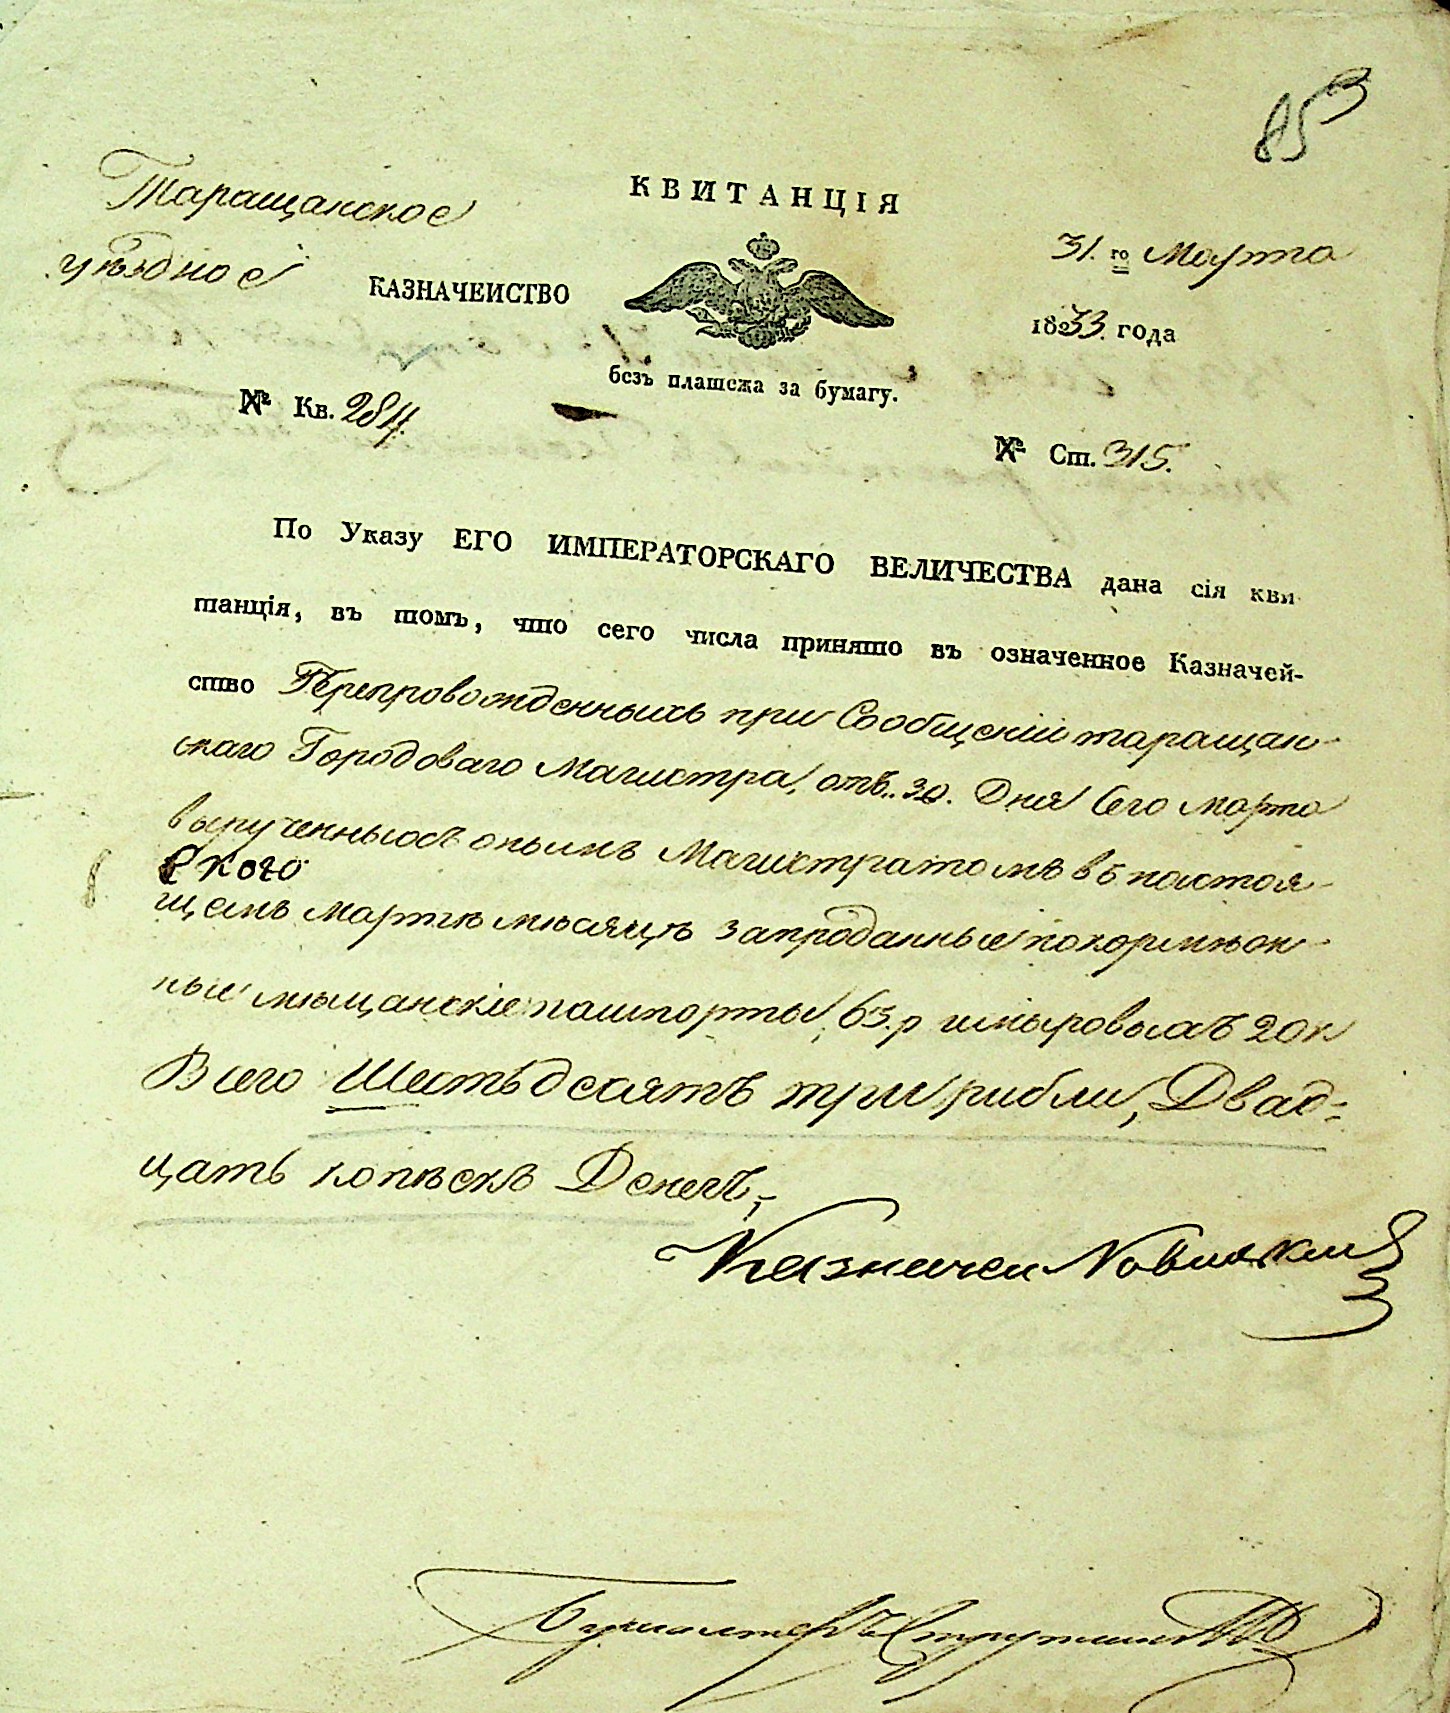 853
КВИТАНЦІЯ
Таращанское
уѣздное КАЗНАЧЕЙСТВО
31. го Марта
1833. года
безъ платежа за бумагу.
№ Кв. 284.
№ Ст. 315.
По Указу ЕГО ИМПЕРАТОРСКАГО ВЕЛИЧЕСТВА дана сія кви
танція, въ томъ, что сего числа принято въ означенное Казначей-
ство Перепровожденныхъ при Сообщеніи таращан-
скаго Городоваго Магистра, отъ 30. Дня Сего Марта
вырученныхъ онымъ Магистратомъ въ настоя-
щемъ Мартѣ мѣсяцѣ запроданные покормежн-
ные мѣщанскіе пашпорты, 63. р 20 к
Всего Шестьдесятъ три рубли, Двад-
цать копѣекъ Денегъ,
Казначей
Бухгалтеръ